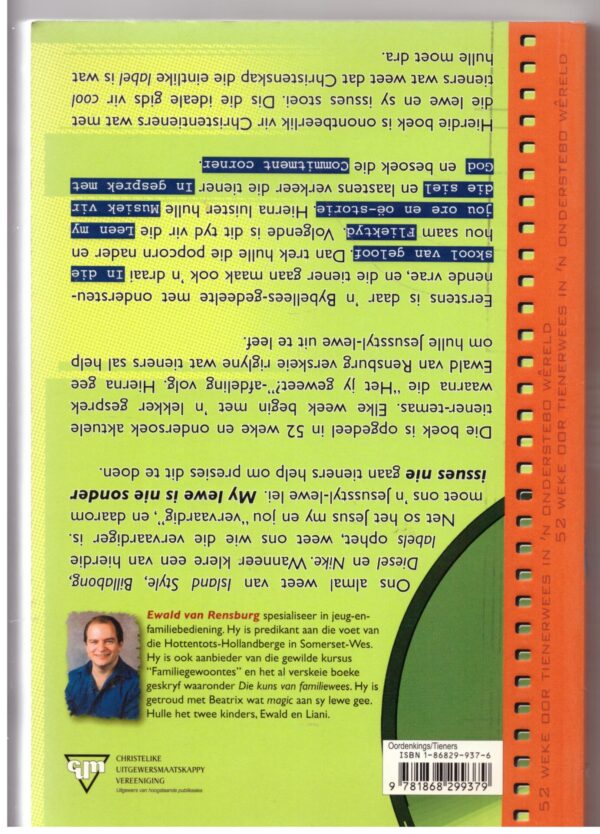 Ons almal weet van Island Style, Billabong,
Diesel en Nike. Wanneer klere een van hierdie
labels ophet, weet ons wie die vervaardiger is.
Net so het Jesus my en jou "vervaardig", en daarom
moet ons 'n Jesusstyl-lewe lei. My lewe is nie sonder
issues nie gaan tieners help om presies dit te doen.
Die boek is opgedeel in 52 weke en ondersoek aktuele
tiener-temas. Elke week begin met 'n lekker gesprek
waarna die "Het jy geweet?"-afdeling volg. Hierna gee
Ewald van Rensburg verskeie riglyne wat tieners sal help
om hulle Jesusstyl-lewe uit te leef.
Eerstens is daar 'n Bybellees-gedeelte met ondersteu-
nende vrae, en die tiener gaan maak ook 'n draai In die
skool van geloof. Dan trek hulle die popcorn nader en
hou saam Fliektyd. Volgende is dit tyd vir die Leen my
jou ore en oë-storie. Hierna luister hulle Musiek vir
die siel en laastens verkeer die tiener In gesprek met
God en besoek die Commitment corner.
Hierdie boek is onontbeerlik vir Christentieners wat met
die lewe en sy issues stoei. Dis die ideale gids vir cool
tieners wat weet dat Christenskap die eintlike label is wat
hulle moet dra.
Ewald van Rensburg spesialiseer in jeug-en-
familiebediening. Hy is predikant aan die voet van
die Hottentots-Hollandberge in Somerset-Wes.
Hy is ook aanbieder van die gewilde kursus
"Familiegewoontes" en het al verskeie boeke
geskryf waaronder Die kuns van familiewees. Hy is
getroud met Beatrix wat magic aan sy lewe gee.
Hulle het twee kinders, Ewald en Liani.
CUM
CHRISTELIKE
UITGEWERSMAATSKAPPY
VERENIGING
Uitgewers van hoogstaande publikasies
Oordenkings/Tieners
ISBN 1-86829-937-6
9 781868 299379
52 WEKE OOR TIENERWEES IN 'N ONDERSTEBO WÊRELD
52 WEKE OOR TIENERWEES IN 'N ONDERSTEBO WÊRELD